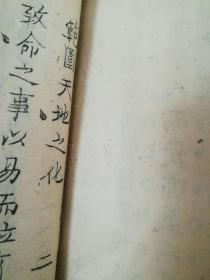 範圍天地之化
二
致命之事以易而立